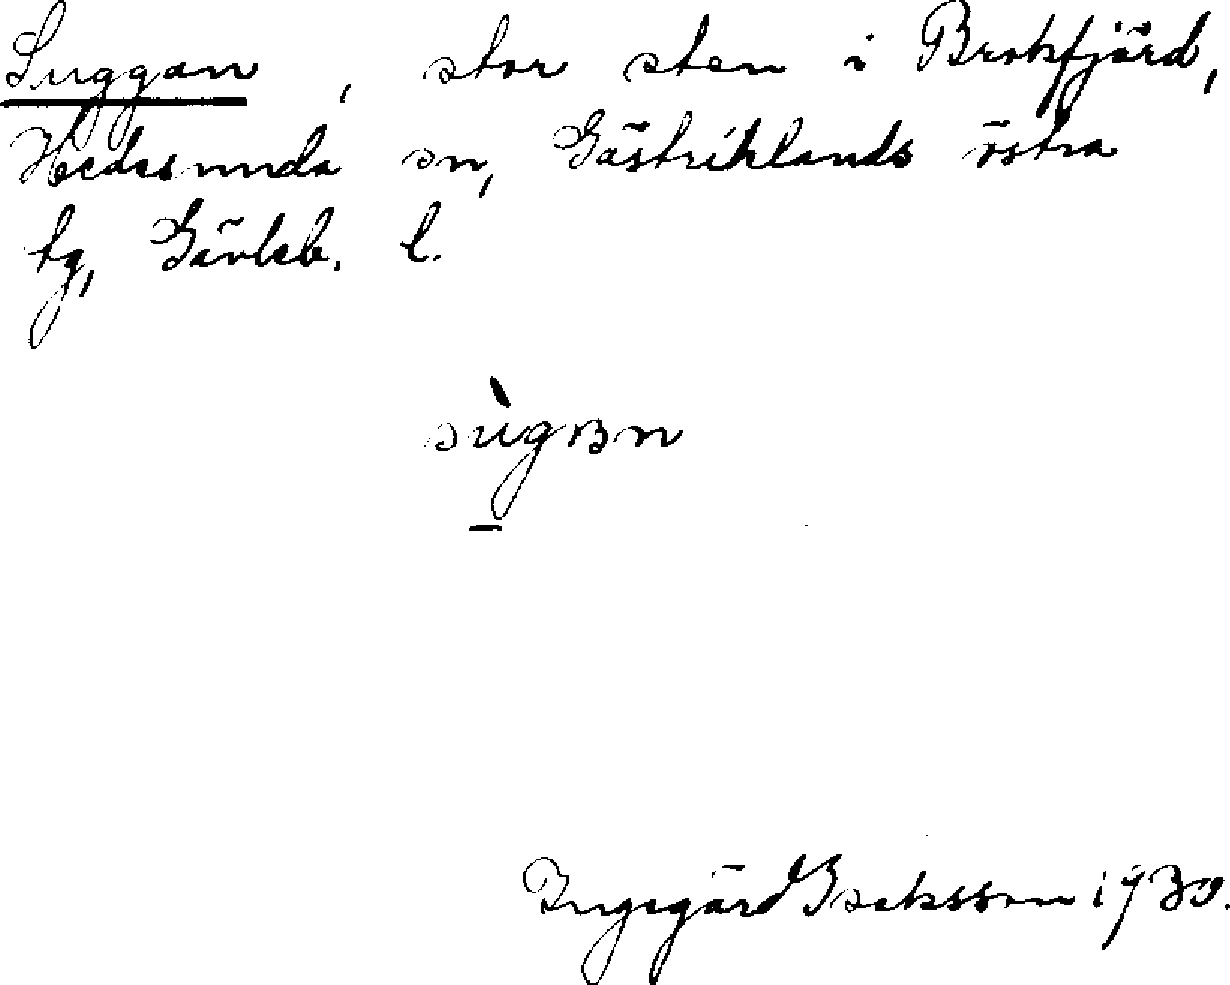 Suggan, stor sten i Brokfjärd,
Hedesunda sn, Gästriklands östra
tg, Gävleb. l.
Ingegärd Isaksson 1930.